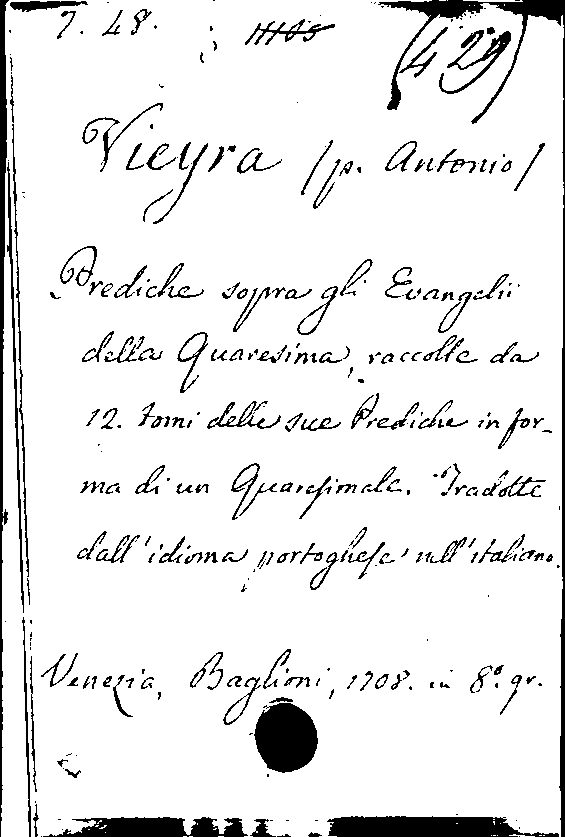 7. 48.
(429)
Vieyra /p. Antonio/
Prediche sopra gli Evangelii
della Quaresima, raccolte da
12. tomi delle sue Prediche in for-
ma di un Quaresimale. Tradotte
dall'idioma portoghese nell'italiano.
Venezia, Baglioni, 1708. in 8º. gr.